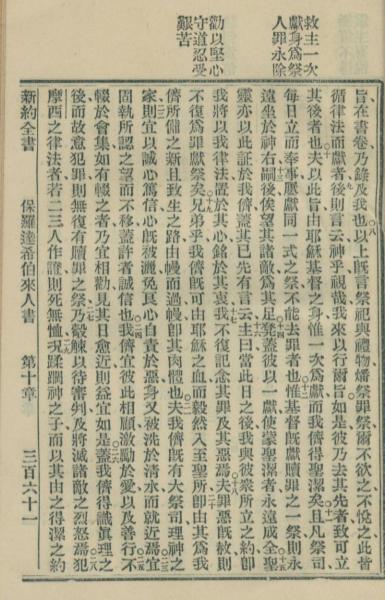 救主一次
獻身爲祭
人罪永除
勸以堅心
守道忍受
艱苦
旨在書卷乃錄及我也以上既言祭祀與禮物燔祭罪祭爾不欲之不悅之此皆
循律法而獻者後則言云神乎視哉我來以行爾旨如是彼乃去其先者致可立
其後者也夫以此旨由耶穌基督之身惟一次爲獻而我儕得聖潔矣且凡祭司
每日立而奉事屢獻同一式之祭不能去罪者也惟基督既獻贖罪之一祭則永
遠坐於神右嗣後俟望其諸敵爲其足凳蓋彼以一獻使蒙聖潔者永遠成全聖
靈亦以此証於我儕蓋其已先有言云主曰當此日之後我與彼衆所立之約卽
我將以我律法置於其心銘於其衷我不復記念其罪及其惡焉夫罪惡既赦則
不復爲罪獻祭矣兄弟乎我儕既可由耶穌之血而毅然入至聖所卽由其爲我
儕所備之新且致生之路由幔而過幔卽其肉體也夫我儕既有大祭司理神之
家則宜以誠心篤信心既被灑免良心自責於惡身又被洗於清水而就近焉宜
固執所認之望而不移蓋許者誠信也我儕宜彼此相顧激勵於愛以及善行不
輟於會集如有輟之者乃宜相勸見其日愈近則益宜如是蓋我儕得識眞理之
後而故意犯罪則無復有贖罪之祭乃觳觫以待審判及將滅諸敵之烈怒焉犯
摩西之律法者若二三人作證則死無恤況蹂躪神之子而以其由之得潔之約
新約全書 保羅達希伯來人書 第十章 三百六十一